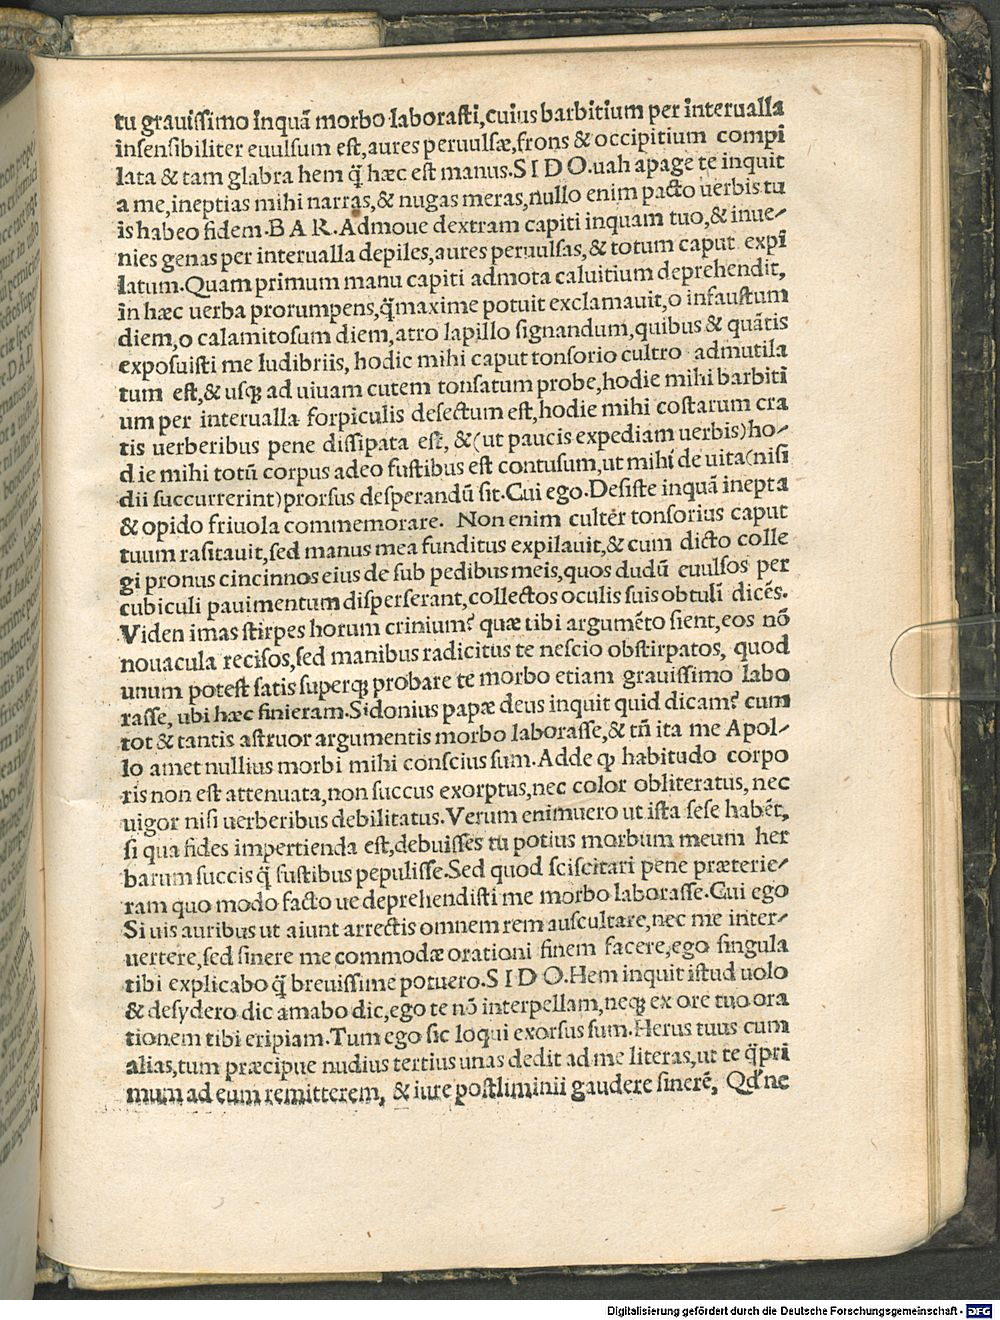 tu grauiſſimo inquā morbo laboraſti,cuius barbitium per interualla
inſenſibiliter euulſum eſt,aures peruulſæ,frons & occipitium compi
lata & tam glabra hem q̄ hæc eſt manus.S I D O.uah apage te inquit
a me,ineptias mihi narras,& nugas meras,nullo enim pacto uerbis tu
is habeo fidem.B A R.Admoue dextram capiti inquam tuo,& inue⸗
nies genas per interualla depiles,aures peruulſas,& totum caput expi
latum.Quam primum manu capiti admota caluitium deprehendit,
in hæc uerba prorumpens,q̄maxime potuit exclamauit,o infauſtum
diem,o calamitoſum diem,atro lapillo ſignandum,quibus & quātis
expoſuiſti me ludibriis, hodie mihi caput tonſorio cultro admutila
tum eſt,& uſqꝫ ad uiuam cutem tonſatum probe,hodie mihi barbiti
um per interualla forpiculis deſectum eſt,hodie mihi coſtarum cra
tis uerberibus pene diſſipata eſt, &(ut paucis expediam uerbis)ho⸗
die mihi totū corpus adeo fuſtibus eſt contuſum,ut mihi de uita(niſi
dii ſuccurrerint)prorſus deſperandū ſit.Cui ego.Deſiſte inquā inepta
& opido friuola commemorare. Non enim culter tonſorius caput
tuum raſitauit,ſed manus mea funditus expilauit,& cum dicto colle
gi pronus cincinnos eius de ſub pedibus meis,quos dudū euulſos per
cubiculi pauimentum diſperſerant,collectos oculis ſuis obtuli dicēs.
Viden imas ſtirpes horum crinium? quæ tibi argumēto ſient,eos nō
nouacula reciſos,ſed manibus radicitus te neſcio obſtirpatos, quod
unum poteſt ſatis ſuperqꝫ probare te morbo etiam grauiſſimo labo
raſſe, ubi hæc finieram.Sidonius papæ deus inquit quid dicam? cum
tot & tantis aſtruor argumentis morbo laboraſſe,& tñ ita me Apol⸗
lo amet nullius morbi mihi conſcius ſum.Adde qꝫ habitudo corpo
ris non eſt attenuata,non ſuccus exorptus,nec color obliteratus, nec
uigor niſi uerberibus debilitatus.Verum enimuero ut iſta ſeſe habēt,
ſi qua fides impertienda eſt,debuiſſes tu potius morbum meum her
barum ſuccis q̄ fuſtibus pepuliſſe.Sed quod ſciſcitari pene præterie⸗
ram quo modo facto ue deprehendiſti me morbo laboraſſe.Cui ego
Si uis auribus ut aiunt arrectis omnem rem auſcultare,nec me inter⸗
uertere,ſed ſinere me commodæ orationi finem facere,ego ſingula
tibi explicabo q̄ breuiſſime potuero.S I D O.Hem inquit iſtud uolo
& deſydero dic amabo dic,ego te nō interpellam,neqꝫ ex ore tuo ora
tionem tibi eripiam.Tum ego ſic loqui exorſus ſum.Herus tuus cum
alias,tum præcipue nudius tertius unas dedit ad me literas,ut te q̄pri
mum ad eum remitterem, & iure poſtliminii gaudere ſinerē, Qd̓ ne
Digitalisierung gefördert durch die Deutsche Forschungsgemeinschaft - DFG